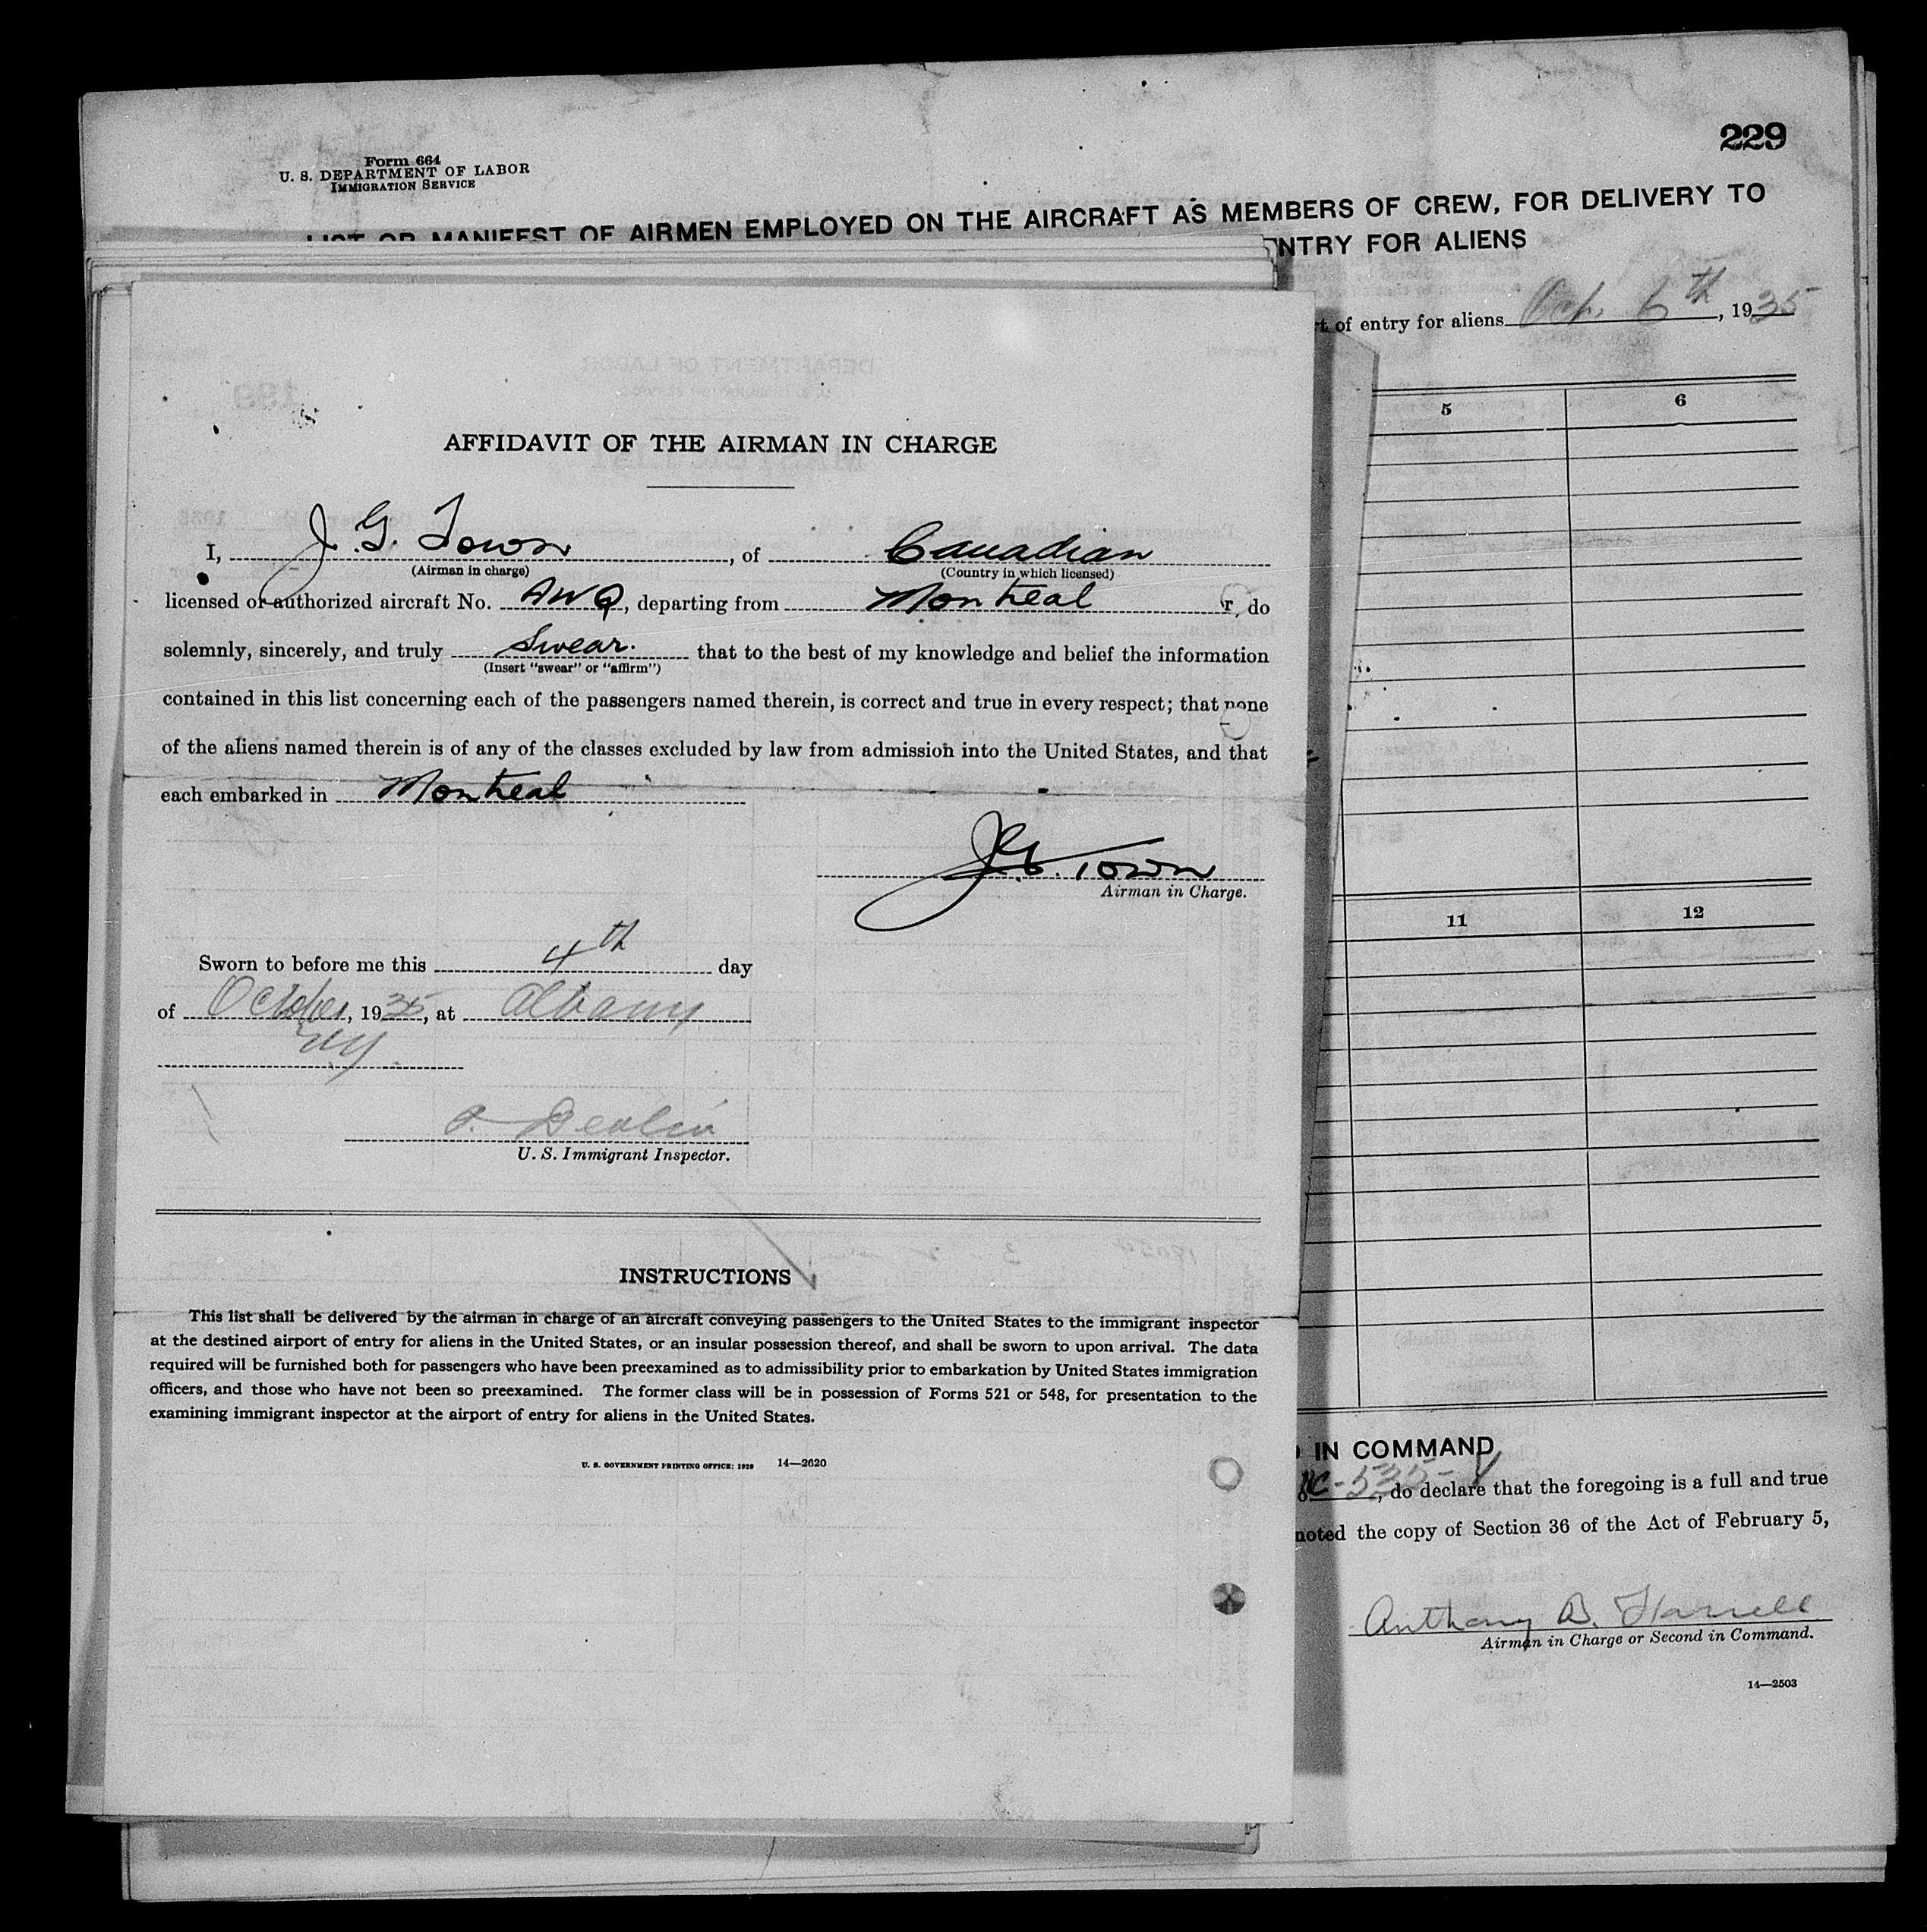 229
Form 664
U. S. DEPARTMENT OF LABOR
IMMIGRATION SERVICE
LIST OR MANIFEST OF AIRMEN EMPLOYED ON THE AIRCRAFT AS MEMBERS OF CREW, FOR DELIVERY TO
ENTRY FOR ALIENS
of entry for aliens Oct. 6th, 1935
5 6
11 12
IN COMMAND
NC-535-V, do declare that the foregoing is a full and true
noted the copy of Section 36 of the Act of February 5,
Anthony B.
Airman in Charge or Second in Command.
14—2503
AFFIDAVIT OF THE AIRMAN IN CHARGE
I, J. G. Town, of Canadian
(Airman in charge) (Country in which licensed)
licensed or authorized aircraft No. AWQ, departing from Montreal r, do
solemnly, sincerely, and truly Swear. that to the best of my knowledge and belief the information
(Insert "swear" or "affirm")
contained in this list concerning each of the passengers named therein, is correct and true in every respect; that none
of the aliens named therein is of any of the classes excluded by law from admission into the United States, and that
each embarked in Montreal
J. G. Town
Airman in Charge.
Sworn to before me this 4th day
of October, 1935, at Albany
NY.
Devlin
U. S. Immigrant Inspector.
INSTRUCTIONS
This list shall be delivered by the airman in charge of an aircraft conveying passengers to the United States to the immigrant inspector
at the destined airport of entry for aliens in the United States, or an insular possession thereof, and shall be sworn to upon arrival. The data
required will be furnished both for passengers who have been preexamined as to admissibility prior to embarkation by United States immigration
officers, and those who have not been so preexamined. The former class will be in possession of Forms 521 or 548, for presentation to the
examining immigrant inspector at the airport of entry for aliens in the United States.
U. S. GOVERNMENT PRINTING OFFICE: 1929 14—2620